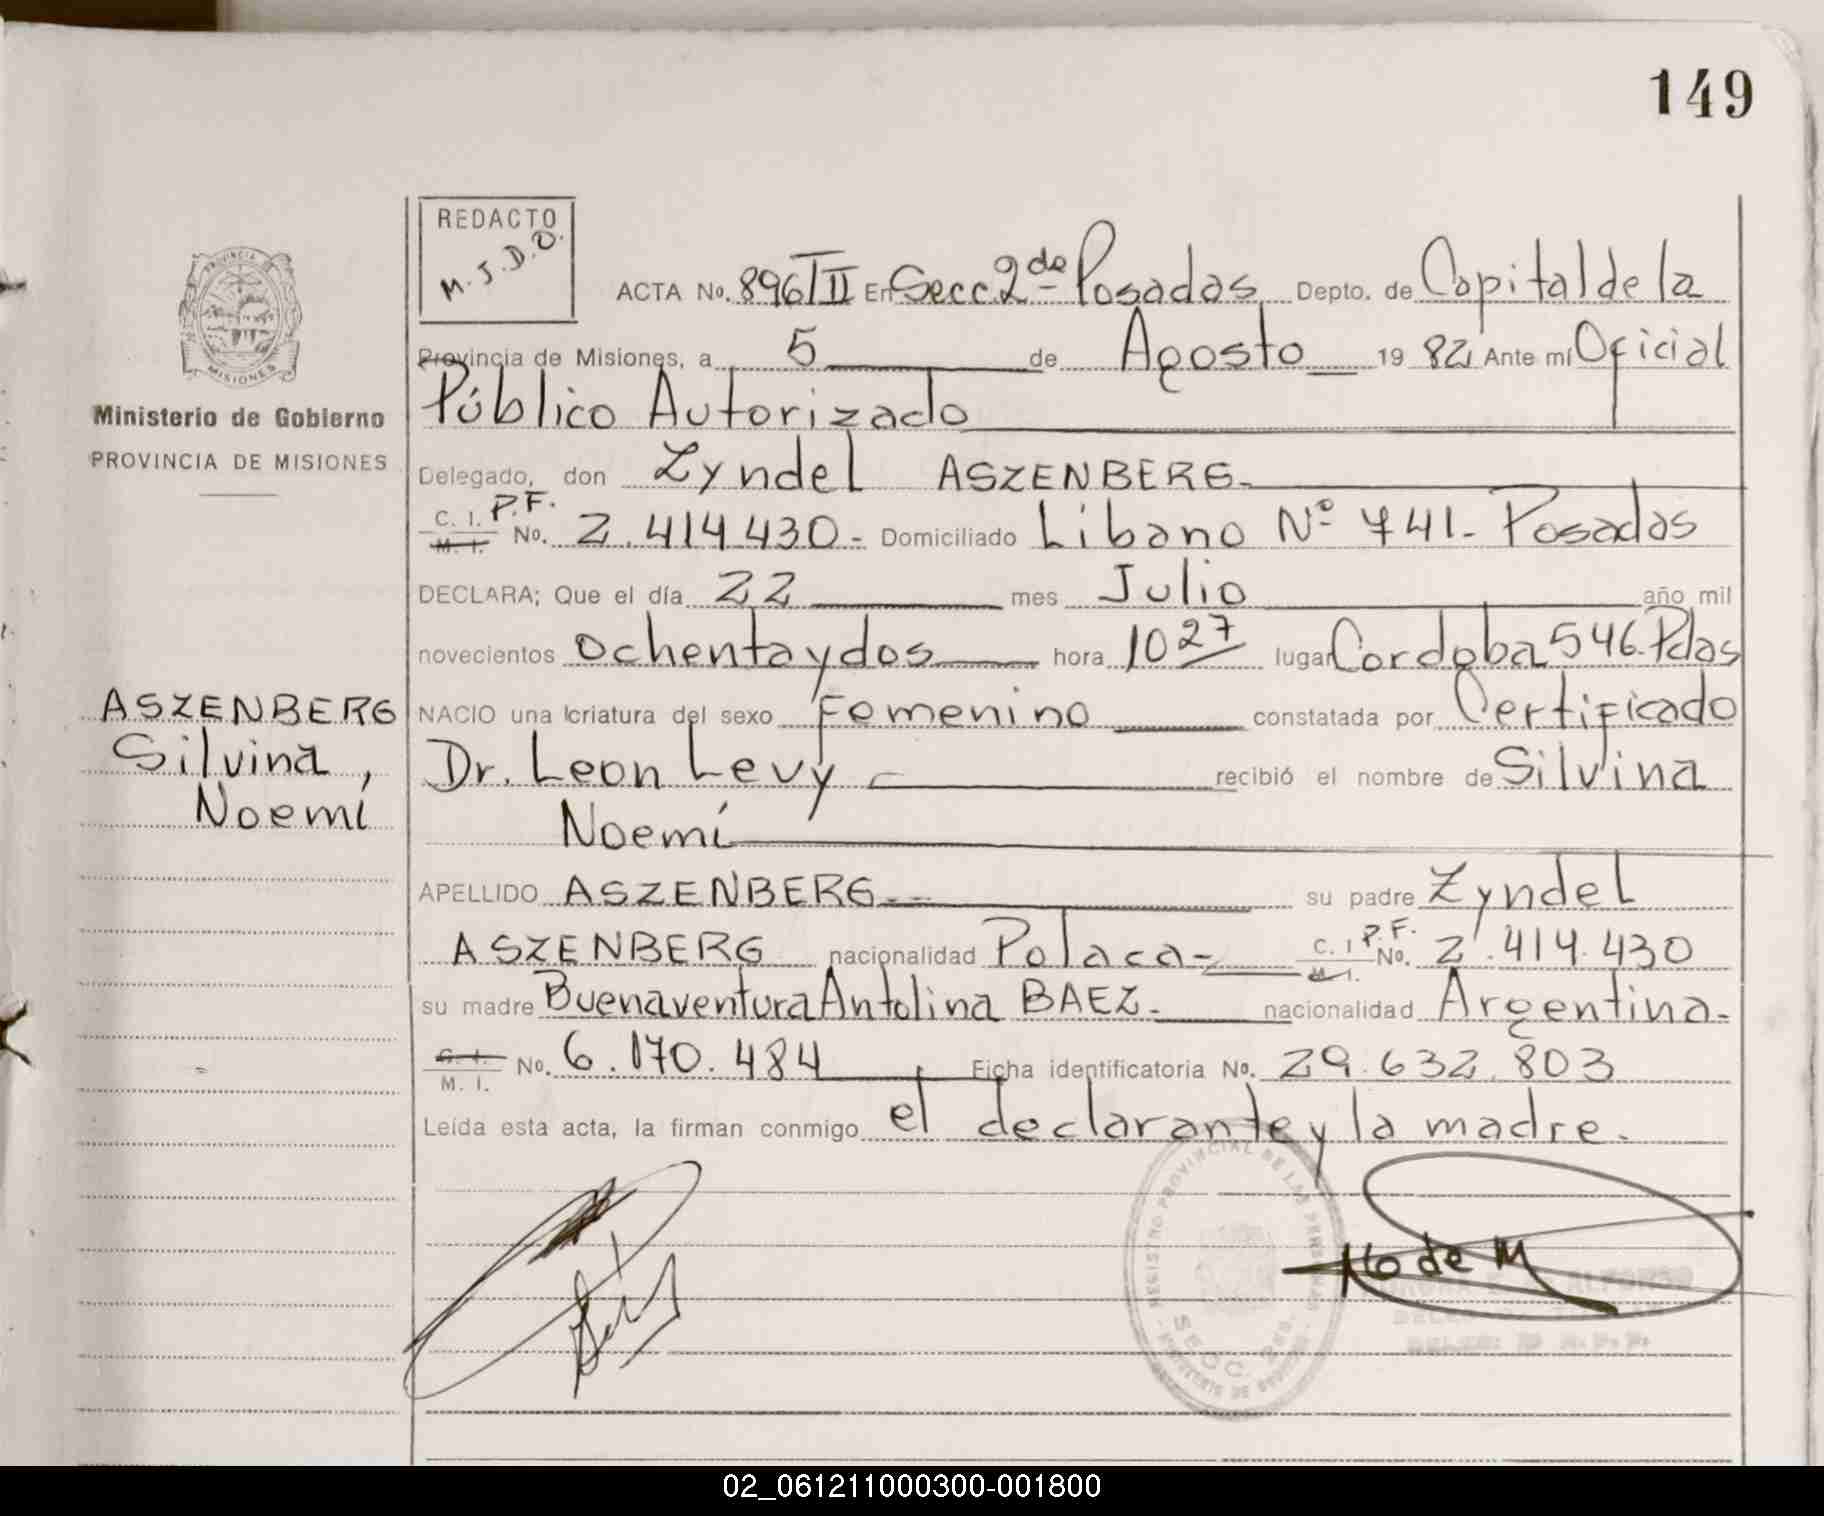 149
REDACTO
M.J.D.O.
ACTA No. 896 T II En Secc. 2da Posadas Depto. de Capital de la
Provincia de Misiones, a 5 de Agosto 19 82 Ante mí Oficial
Público Autorizado
Delegado, don Zyndel ASZENBERG.-
C. I. P.F.
M. I. No. 2.414.430.- Domiciliado Libano Nº 741.- Posadas
DECLARA; Que el día 22 mes Julio año mil
novecientos ochenta y dos hora 10 27 lugar Cordoba 546.Pdas
NACIO una criatura del sexo Femenino constatada por Certificado
Dr. Leon Levy recibió el nombre de Silvina
Noemí
APELLIDO ASZENBERG.-- su padre Zyndel
ASZENBERG nacionalidad Polaca- C. I. P.F.
M. I. No. 2.414.430
su madre Buenaventura Antolina BAEZ.- nacionalidad Argentina.-
C. I.
M. I. No. 6.170.484 Ficha identificatoria No. 29.632.803
Leída esta acta, la firman conmigo el declarante y la madre.
PROVINCIA DE
MISIONES
Ministerio de Gobierno
PROVINCIA DE MISIONES
ASZENBERG
Silvina,
Noemí
REGISTRO PROVINCIAL DE LAS PERSONAS
SECC. 2da.
02_061211000300-001800